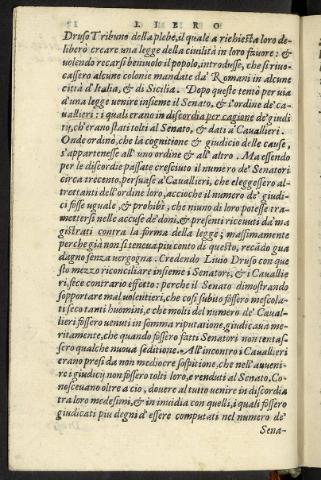 L I B R O
Druso Tribuno della plebe, il quale a richiesta loro de-
liberò creare una legge della ciuilità in loro fauore: &
uolendo recarsi beniuolo il popolo, introdusse, che si riuo-
cassero alcune colonie mandate da' Romani in alcune
città d'Italia, & di Sicilia. Dopo queste tentò per uia
d'una legge uenire insieme il Senato, & l'ordine de' ca-
uallieri: i quali erano in discordia per cagione de' giudi
tij, ch'erano stati tolti al Senato, & dati a' Cauallieri.
Onde ordinò, che la cognitione & giudicio delle cause,
s'appartenesse all'uno ordine & all'altro. Ma essendo
per le discordie passate cresciuto il numero de' Senatori
circa trecento, persuase a' Cauallieri, che eleggessero al-
trettanti dell'ordine loro, accioche il numero de' giudi-
ci fosse uguale, & prohibì, che niuno di loro potesse tra-
mettersi nelle accuse de' doni, & presenti riceuuti da' ma
gistrati contra la forma della legge; massimamente
perche già non si teneua piu conto di questo, recado gua
dagno senza uergogna. Credendo Liuio Druso con que
sto mezzo riconciliare insieme i Senatori, & i Cauallie
ri, fece contrario effetto: perche il Senato dimostrando
sopportare mal uolentieri, che così subito fossero mescola-
ti seco tanti huomini, e che molti del numero de' Caual-
lieri fossero uenuti in somma riputatione, giudicaua me-
ritamente, che quando fossero fatti Senatori non tentas-
sero qualche nuoua seditione. All'incontro i Cauallieri
erano presi da non mediocre sospitione, che nell'auueni-
re i giudicij non fossero tolti loro, e renduti al Senato. Co-
nosceuano oltre a cio, douere al tutto uenire in discordia
tra loro medesimi, & in inuidia con quelli, i quali fossero
giudicati piu degni d'essere computati nel numero de'
Sena-